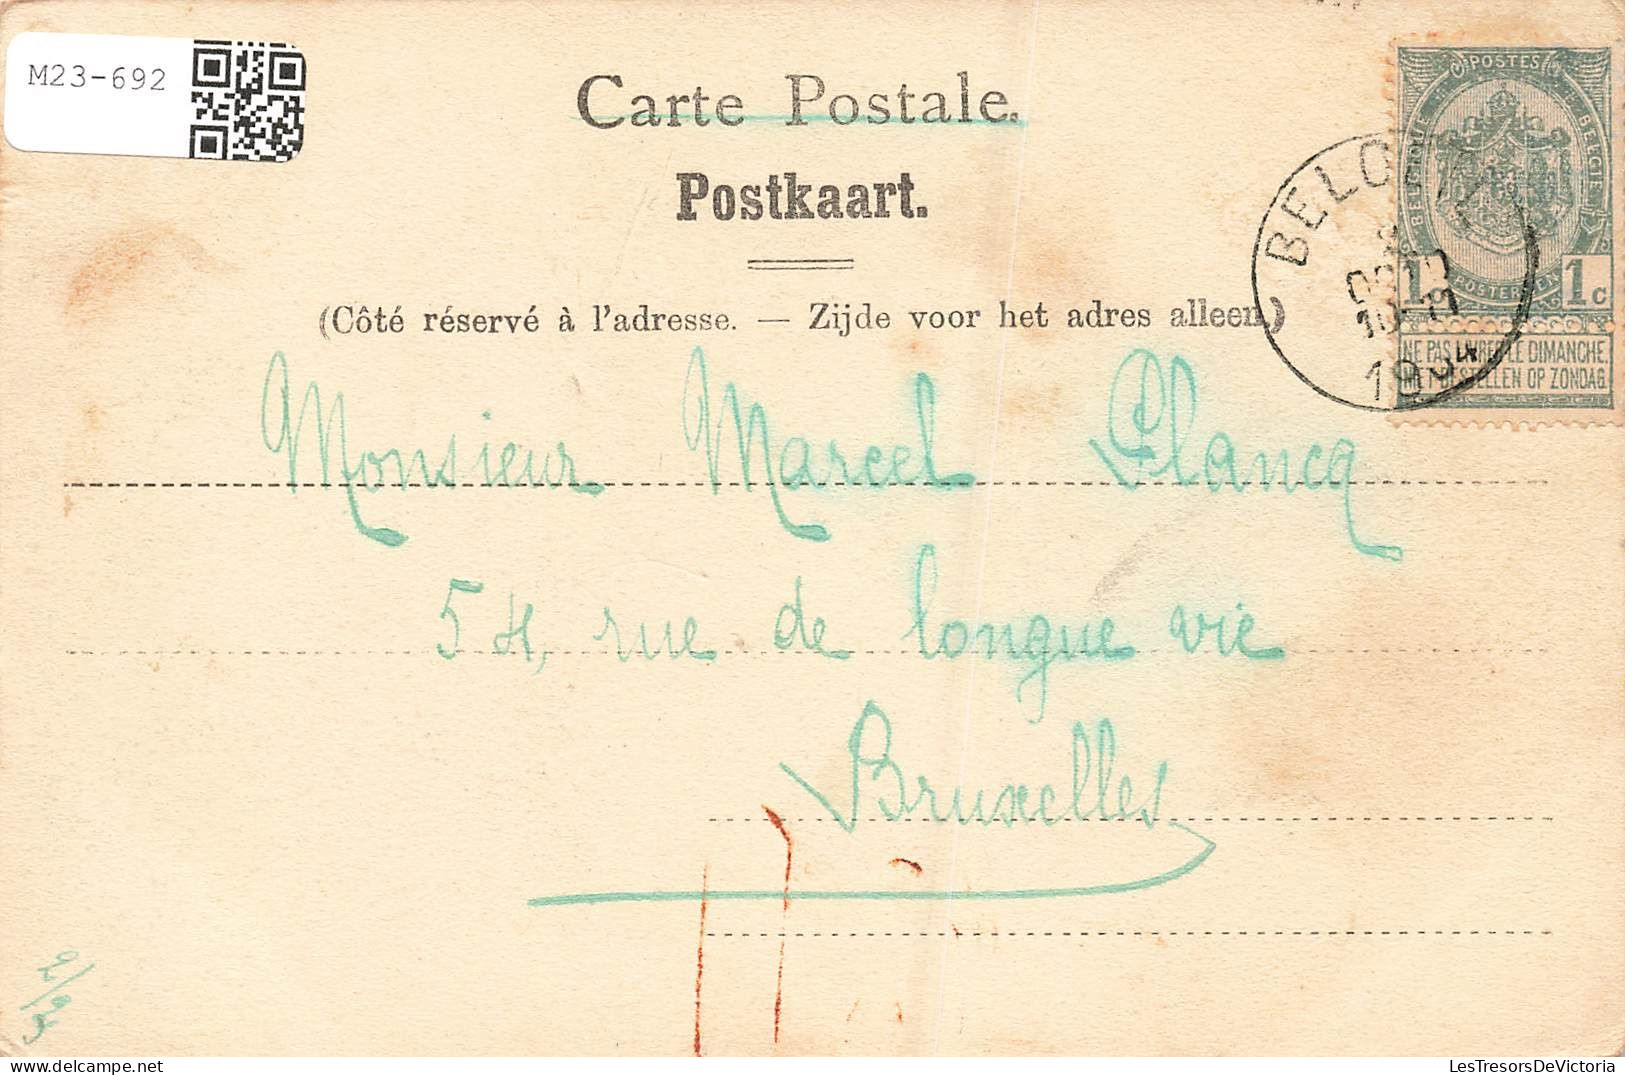 M23-692
Carte Postale.
Postkaart.
(Côté réservé à l'adresse. — Zijde voor het adres alleen)
POSTES
BELGIQUE BELGIE
POSTERIJEN
1 1c
NE PAS LIVRER LE DIMANCHE.
NIET BESTELLEN OP ZONDAG.
Monsieur Marcel Clancq
54, rue de longue vie
Bruxelles
LesTresorsDeVictoria